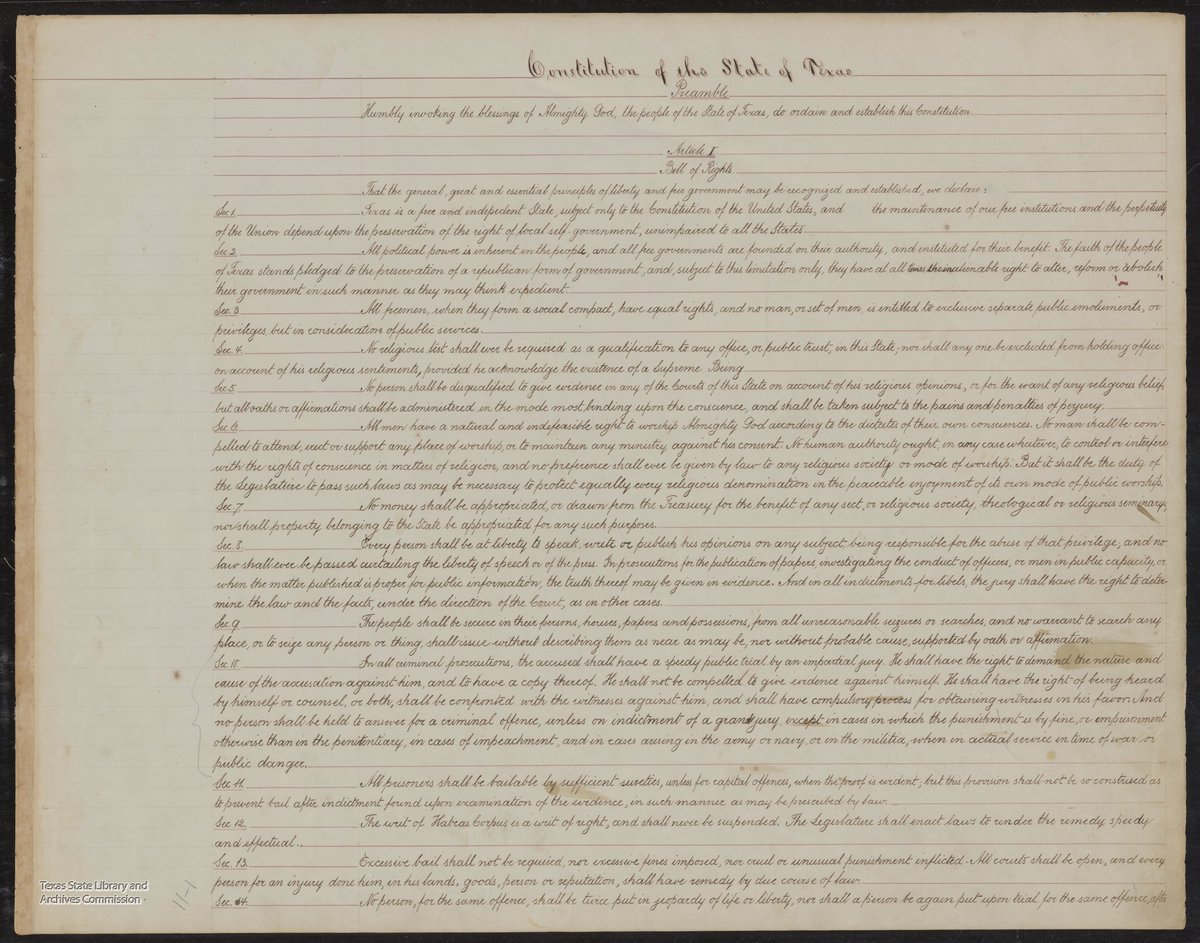 Constitution of the State of Texas
Preamble.
Humbly invoking the blessings of Almighty God, the people of the State of Texas, do ordain and establish this Constitution.
Article I.
Bill of Rights
That the general, great and essential principles of liberty and free government may be recognized and established, we declare:
Sec 1. Texas is a free and indepedent State, subject only to the Constitution of the United States, and the maintenance of our free institutions and the perpetuity
of the Union depend upon the preservation of the right of local self-government, unimpaired to all the States.
Sec 2. All political power is inherent in the people, and all free governments are founded on their authority, and instituted for their benefit. The faith of the people
of Texas stands pledged to the preservation of a republican form of government, and, subject to this limitation only, they have at all times the inalienable right to alter, reform or abolish
their government in such manner as they may think expedient.
Sec. 3 All freemen, when they form a social compact, have equal rights, and no man, or set of men, is entitled to exclusive separate public emoluments, or
privileges, but in consideration of public services.
Sec. 4. No religious test shall ever be required as a qualification to any office, or public trust, in this State; nor shall any one be excluded from holding office
on account of his religious sentiments, provided he acknowledge the existence of a Supreme Being.
Sec 5 No person shall be disqualified to give evidence in any of the Courts of this State on account of his religious opinions, or for the want of any religious belief,
but all oaths or affirmations shall be administered in the mode most binding upon the conscience, and shall be taken subject to the pains and penalties of perjury.
Sec 6. All men have a natural and indefeasible right to worship Almighty God according to the dictates of their own consciences. No man shall be com-
pelled to attend, erect or support any place of worship, or to maintain any ministry against his consent. No human authority ought, in any case whatever, to control or interfere
with the rights of conscience in matters of religion, and no preference shall ever be given by law to any religious society or mode of worship. But it shall be the duty of
the Legislature to pass such laws as may be necessary to protect equally every religious denomination in the peaceable enjoyment of its own mode of public worship.
Sec. 7. No money shall be appropriated, or drawn from the Treasury for the benefit of any sect, or religious society, theological or religious seminary;
nor shall property belonging to the State be appropriated for any such purposes.
Sec. 8. Every person shall be at liberty to speak, write or publish his opinions on any subject, being responsible for the abuse of that privilege, and no
law shall ever be passed curtailing the liberty of speech or of the press. In prosecutions for the publication of papers, investigating the conduct of officers, or men in public capacity, or
when the matter published is proper for public information, the truth thereof may be given in evidence. And in all indictments for libels, the jury shall have the right to deter-
mine the law and the facts, under the direction of the Court, as in other cases.
Sec. 9. The people shall be secure in their persons, houses, papers and possessions, from all unreasonable seizures or searches, and no warrant to search any
place, or to seize any person or thing, shall issue without describing them as near as may be, nor without probable cause, supported by oath or affirmation.
Sec 10 In all criminal prosecutions, the accused shall have a speedy public trial by an impartial jury. He shall have the right to demand the nature and
cause of the accusation against him, and to have a copy thereof. He shall not be compelled to give evidence against himself. He shall have the right of being heard
by himself or counsel, or both, shall be confronted with the witnesses against him, and shall have compulsory process for obtaining witnesses in his favor. And
no person shall be held to answer for a criminal offence, unless on indictment of a grand jury, except in cases in which the punishment is by fine, or imprisonment
otherwise than in the penitentiary, in cases of impeachment, and in cases arising in the army or navy, or in the militia, when in actual service in time of war or
public danger.
Sec. 11. All prisoners shall be bailable by sufficient sureties, unless for capital offences, when the proof is evident; but this provision shall not be so construed as
to prevent bail after indictment found upon examination of the evidence, in such manner as may be prescribed by law.
Sec 12. The writ of Habeas Corpus is a writ of right, and shall never be suspended. The Legislature shall enact laws to render the remedy speedy
and effectual.
Sec. 13. Excessive bail shall not be required, nor excessive fines imposed, nor cruel or unusual punishment inflicted. All courts shall be open, and every
person for an injury done him, in his lands, goods, person or reputation, shall have remedy by due course of law.
Sec. 14. No person, for the same offence, shall be twice put in jeopardy of life or liberty, nor shall a person be again put upon trial for the same offence, after
11-1
Texas State Library and
Archives Commission